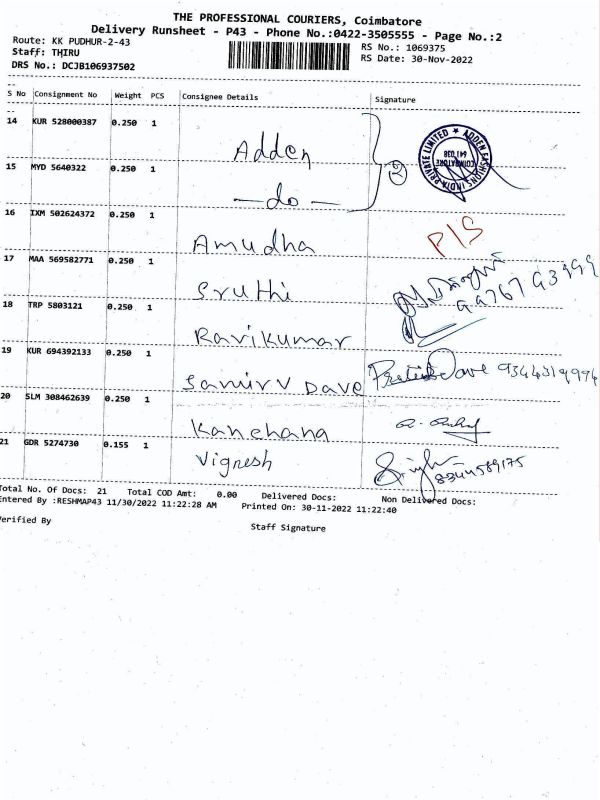 THE PROFESSIONAL COURIERS, Coimbatore
Delivery Runsheet - P43 - Phone No.:0422-3505555 - Page No.:2
Route: KK PUDHUR-2-43
RS No.: 1069375
Staff: THIRU
RS Date: 30-Nov-2022
DRS No.: DCJB106937502
S No Consignment No Weight PCS Consignee Details Signature
14 KUR 528000387 0.250 1 Adden
ADDEN FASHIONS INDIA PRIVATE LIMITED
COIMBATORE
641 038
15 MYD 5640322 0.250 1 -do- 2
16 IXM 502624372 0.250 1 Amudha P/S
17 MAA 569582771 0.250 1 Sruthi
18 TRP 5803121 0.250 1 Ravikumar
19 KUR 694392133 0.250 1 Samirv Dave Dave
20 SLM 308462639 0.250 1 Kanchana
21 GDR 5274730 0.155 1 Vignesh
Total No. Of Docs: 21 Total COD Amt: 0.00 Delivered Docs: Non Delivered Docs:
Entered By :RESHMAP43 11/30/2022 11:22:28 AM Printed On: 30-11-2022 11:22:40
Verified By Staff Signature